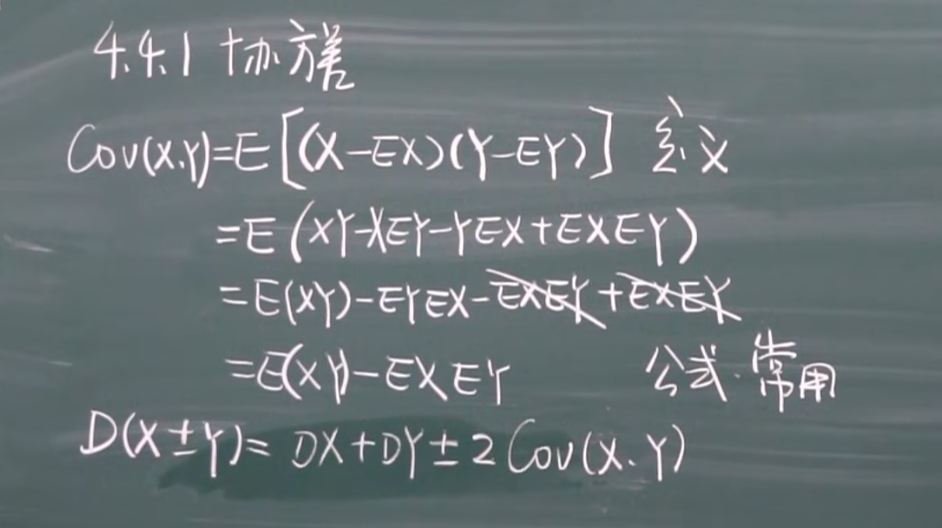 4.4.1 协方差
Cov(X.Y)=E[(X-EX)(Y-EY)] 定义
=E(XY-XEY-YEX+EXEY)
=E(XY)-EYEX-EXEY+EXEY
=E(XY)-EXEY 公式.常用
D(X±Y)=DX+DY±2Cov(X.Y)